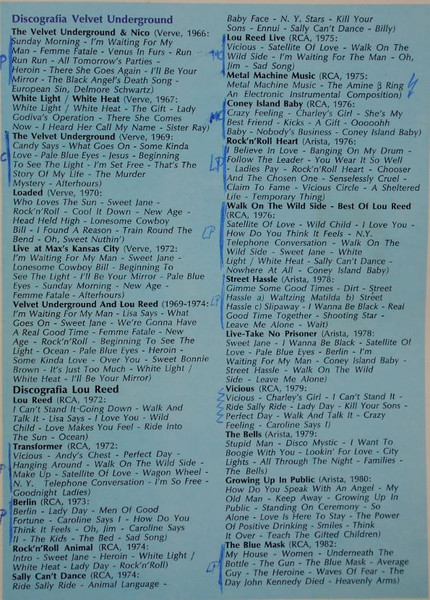 Discografia Velvet Underground
The Velvet Underground & Nico (Verve, 1966:
Sunday Morning - I'm Waiting For My
Man - Femme Fatale - Venus In Furs - Run
Run Run - All Tomorrow's Parties -
Heroin - There She Goes Again - I'll Be Your
Mirror - The Black Angel's Death Song -
European Sin, Delmore Schwartz)
White Light / White Heat (Verve, 1967:
White Light / White Heat - The Gift - Lady
Godiva's Operation - There She Comes
Now - I Heard Her Call My Name - Sister Ray)
The Velvet Underground (Verve, 1969:
Candy Says - What Goes On - Some Kinda
Love - Pale Blue Eyes - Jesus - Beginning
To See The Light - I'm Set Free - That's The
Story Of My Life - The Murder
Mystery - Afterhours)
Loaded (Verve, 1970:
Who Loves The Sun - Sweet Jane -
Rock'n'Roll - Cool It Down - New Age -
Head Held High - Lonesome Cowboy
Bill - I Found A Reason - Train Round The
Bend - Oh, Sweet Nuthin')
Live at Max's Kansas City (Verve, 1972:
I'm Waiting For My Man - Sweet Jane -
Lonesome Cowboy Bill - Beginning To
See The Light - I'll Be Your Mirror - Pale Blue
Eyes - Sunday Morning - New Age -
Femme Fatale - Afterhours)
Velvet Underground And Lou Reed (1969-1974:
I'm Waiting For My Man - Lisa Says - What
Goes On - Sweet Jane - We're Gonna Have
A Real Good Time - Femme Fatale - New
Age - Rock'n'Roll - Beginning To See The
Light - Ocean - Pale Blue Eyes - Heroin -
Some Kinda Love - Over You - Sweet Bonnie
Brown - It's Just Too Much - White Light /
White Heat - I'll Be Your Mirror)
Discografia Lou Reed
Lou Reed (RCA, 1972:
I Can't Stand It-Going Down - Walk And
Talk It - Lisa Says - I Love You - Wild
Child - Love Makes You Feel - Ride Into
The Sun - Ocean)
Transformer (RCA, 1972:
Vicious - Andy's Chest - Perfect Day -
Hanging Around - Walk On The Wild Side -
Make Up - Satellite Of Love - Wagon Wheel -
N.Y. Telephone Conversation - I'm So Free -
Goodnight Ladies)
Berlin (RCA, 1973:
Berlin - Lady Day - Men Of Good
Fortune - Caroline Says I - How Do You
Think It Feels - Oh, Jim - Caroline Says
II - The Kids - The Bed - Sad Song)
Rock'n'Roll Animal (RCA, 1974:
Intro - Sweet Jane - Heroin - White Light /
White Heat - Lady Day - Rock'n'Roll)
Sally Can't Dance (RCA, 1974:
Ride Sally Ride - Animal Language -
Baby Face - N.Y. Stars - Kill Your
Sons - Ennui - Sally Can't Dance - Billy)
Lou Reed Live (RCA, 1975:
Vicious - Satellite Of Love - Walk On The
Wild Side - I'm Waiting For The Man - Oh,
Jim - Sad Song)
Metal Machine Music (RCA, 1975:
Metal Machine Music - The Amine β Ring
An Electronic Instrumental Composition)
Coney Island Baby (RCA, 1976:
Crazy Feeling - Charley's Girl - She's My
Best Friend - Kicks - A Gift - Ooooohh
Baby - Nobody's Business - Coney Island Baby)
Rock'n'Roll Heart (Arista, 1976:
I Believe In Love - Banging On My Drum -
Follow The Leader - You Wear It So Well
- Ladies Pay - Rock'n'Roll Heart - Chooser
And The Chosen One - Senselessly Cruel -
Claim To Fame - Vicious Circle - A Sheltered
Life - Temporary Thing)
Walk On The Wild Side - Best Of Lou Reed
(RCA, 1976:
Satellite Of Love - Wild Child - I Love You -
How Do You Think It Feels - N.Y.
Telephone Conversation - Walk On The
Wild Side - Sweet Jane - White
Light / White Heat - Sally Can't Dance -
Nowhere At All - Coney Island Baby)
Street Hassle (Arista, 1978:
Gimme Some Good Times - Dirt - Street
Hassle a) Waltzing Matilda b) Street
Hassle c) Slipaway - I Wanna Be Black - Real
Good Time Together - Shooting Star -
Leave Me Alone - Wait)
Live-Take No Prisoner (Arista, 1978:
Sweet Jane - I Wanna Be Black - Satellite Of
Love - Pale Blue Eyes - Berlin - I'm
Waiting For My Man - Coney Island Baby -
Street Hassle - Walk On The Wild
Side - Leave Me Alone)
Vicious (RCA, 1979:
Vicious - Charley's Girl - I Can't Stand It -
Ride Sally Ride - Lady Day - Kill Your Sons -
Perfect Day - Walk And Talk It - Crazy
Feeling - Caroline Says I)
The Bells (Arista, 1979:
Stupid Man - Disco Mystic - I Want To
Boogie With You - Lookin' For Love - City
Lights - All Through The Night - Families -
The Bells)
Growing Up In Public (Arista, 1980:
How Do You Speak With An Angel - My
Old Man - Keep Away - Growing Up In
Public - Standing On Ceremony - So
Alone - Love Is Here To Stay - The Power
Of Positive Drinking - Smiles - Think
It Over - Teach The Gifted Children)
The Blue Mask (RCA, 1982:
My House - Women - Underneath The
Bottle - The Gun - The Blue Mask - Average
Guy - The Heroine - Waves Of Fear - The
Day John Kennedy Died - Heavenly Arms)